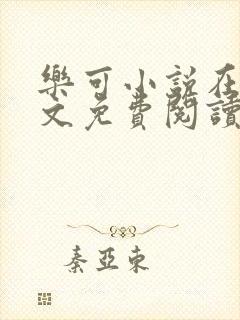 樂可小說在
文免費閱讀
秦亞東